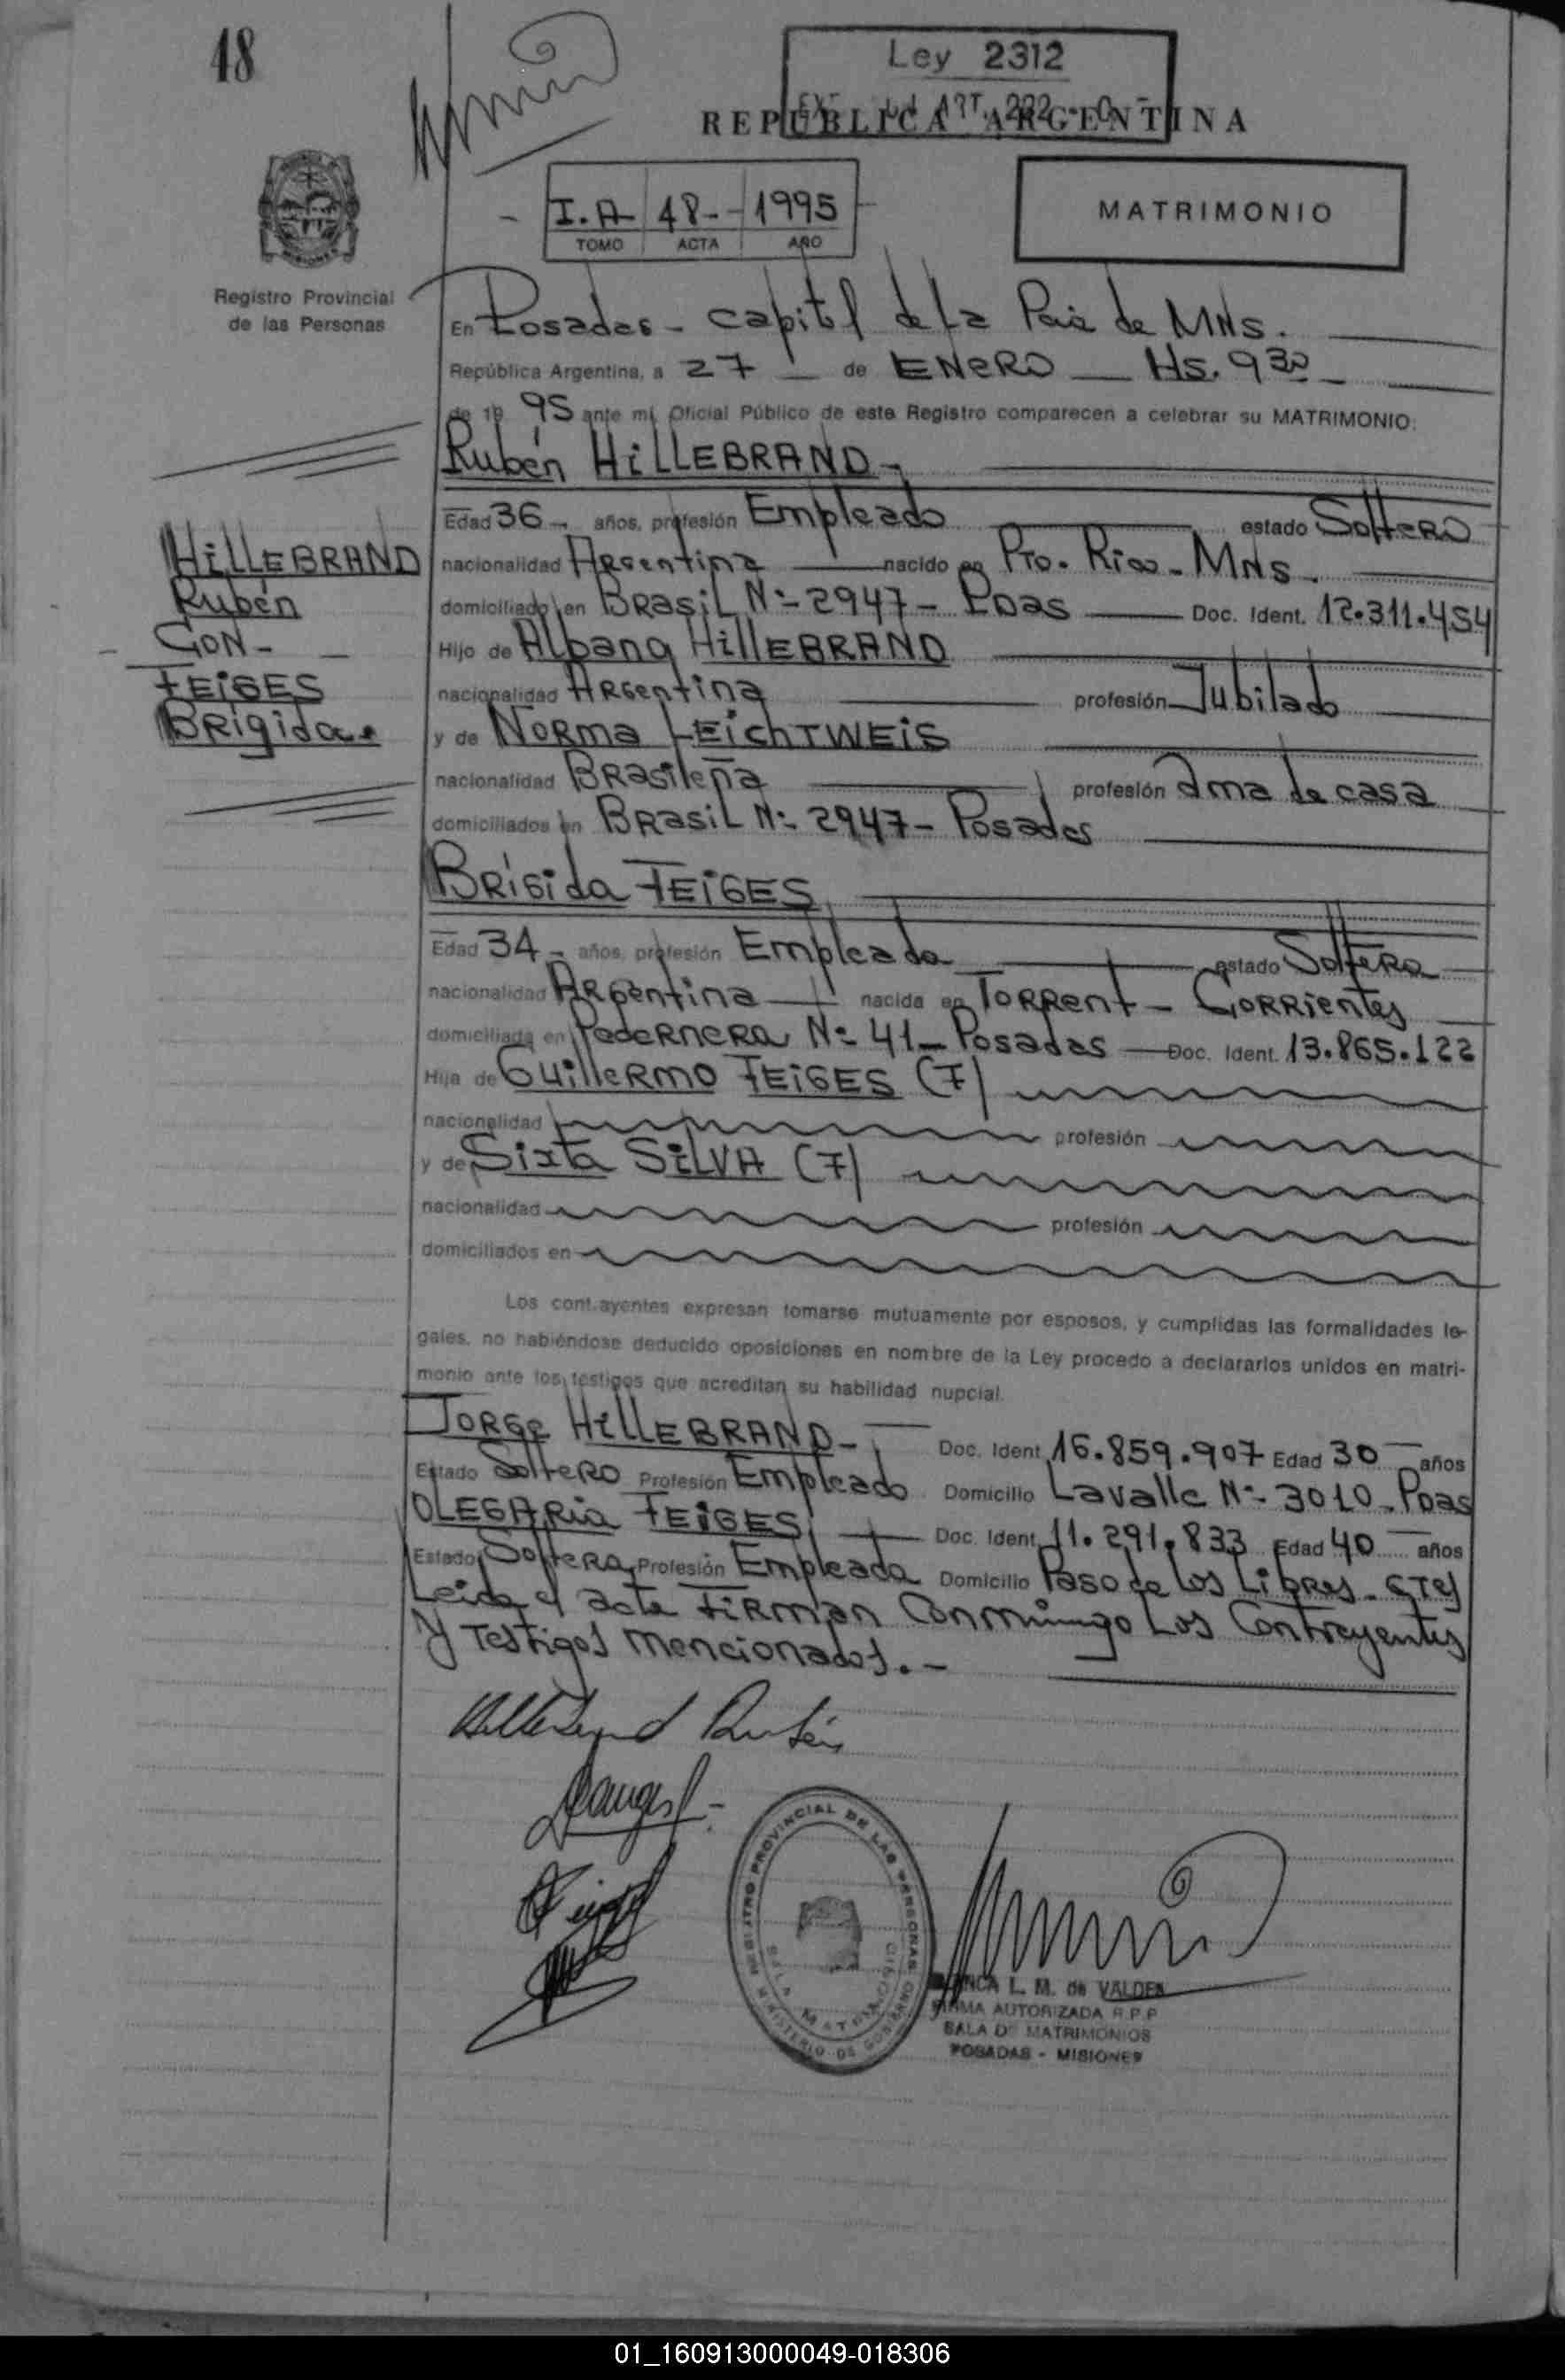 48
Ley 2312
REPUBLICA ARGENTINA
I.A 48-- 1995
TOMO ACTA AÑO
MATRIMONIO
Registro Provincial
de las Personas
En Posadas - capital de la Pcia de MNS.
República Argentina, a 27 de ENERO Hs. 930
de 19 95 ante mí, Oficial Público de este Registro comparecen a celebrar su MATRIMONIO:
Rubén HILLEBRAND -
Edad 36 - años, profesión Empleado estado Soltero
nacionalidad Argentina nacido en Pto. Rico - MNS.
domiciliado en BRASIL N:- 2947 - Pdas Doc. Ident. 12.311.454
Hijo de Albano HILLEBRAND
nacionalidad Argentina profesión Jubilado
y de Norma LEICHTWEIS
nacionalidad BRasileña profesión Ama de casa
domiciliados en BRasil N:- 2947 - Posadas
HILLEBRAND
Rubén
CON -
FEIGES
BRigida.
BRígida FEIGES
Edad 34 - años, profesión Empleada estado Soltera
nacionalidad Argentina nacida en TORRent - CORRientes
domiciliada en Pedernera N:- 41 - Posadas Doc. Ident. 13.865.122
Hija de Guillermo FEIGES (7)
nacionalidad profesión
y de Sixta SILVA (7)
nacionalidad profesión
domiciliados en
Los contrayentes expresan tomarse mutuamente por esposos, y cumplidas las formalidades le-
gales, no habiéndose deducido oposiciones en nombre de la Ley procedo a declararlos unidos en matri-
monio ante los testigos que acreditan su habilidad nupcial.
JORGE HILLEBRAND - Doc. Ident. 16.859.907 Edad 30 años
Estado Soltero Profesión Empleado Domicilio Lavalle N:- 3010 - Pdas
OLEGARIA FEIGES Doc. Ident. 11.291.833 Edad 40 años
Estado Soltera Profesión Empleada Domicilio Paso de los Libres - CTES
Leida el acta FIRMAN conmingo los contrayentes
y Testigos mencionados. -
Hillebrand Rubén
REGISTRO PROVINCIAL DE LAS PERSONAS
MINISTERIO DE GOBIERNO
SALA MATRIMONIO
L. M. de VALDEN
FIRMA AUTORIZADA R.P.P
SALA DE MATRIMONIOS
POSADAS - MISIONES
01_160913000049-018306